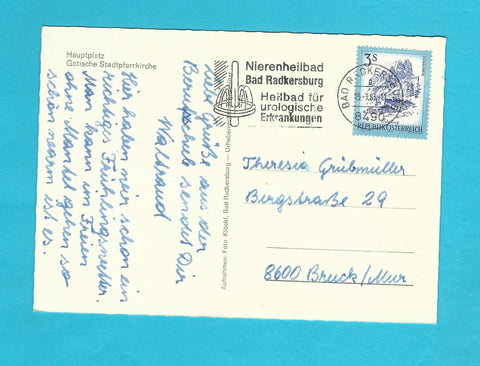 Hauptplatz
Gotische Stadtpfarrkirche
Hier haben wir schon ein
richtiges Frühlingswetter.
Man kann im Freien
ohne Mantel gehen so
schön warm ist es.
Viele Grüße aus der
Berufsschule sendet Dir
Waltraud
Aufnahmen: Foto Klöckl, Bad Radkersburg — Urheber
Nierenheilbad
Bad Radkersburg
Heilbad für
urologische
Erkrankungen
BAD RADKERSBURG
8490
3 S
REPUBLIK ÖSTERREICH
Theresia Grübmüller
Bergstraße 29
8600 Bruck/Mur